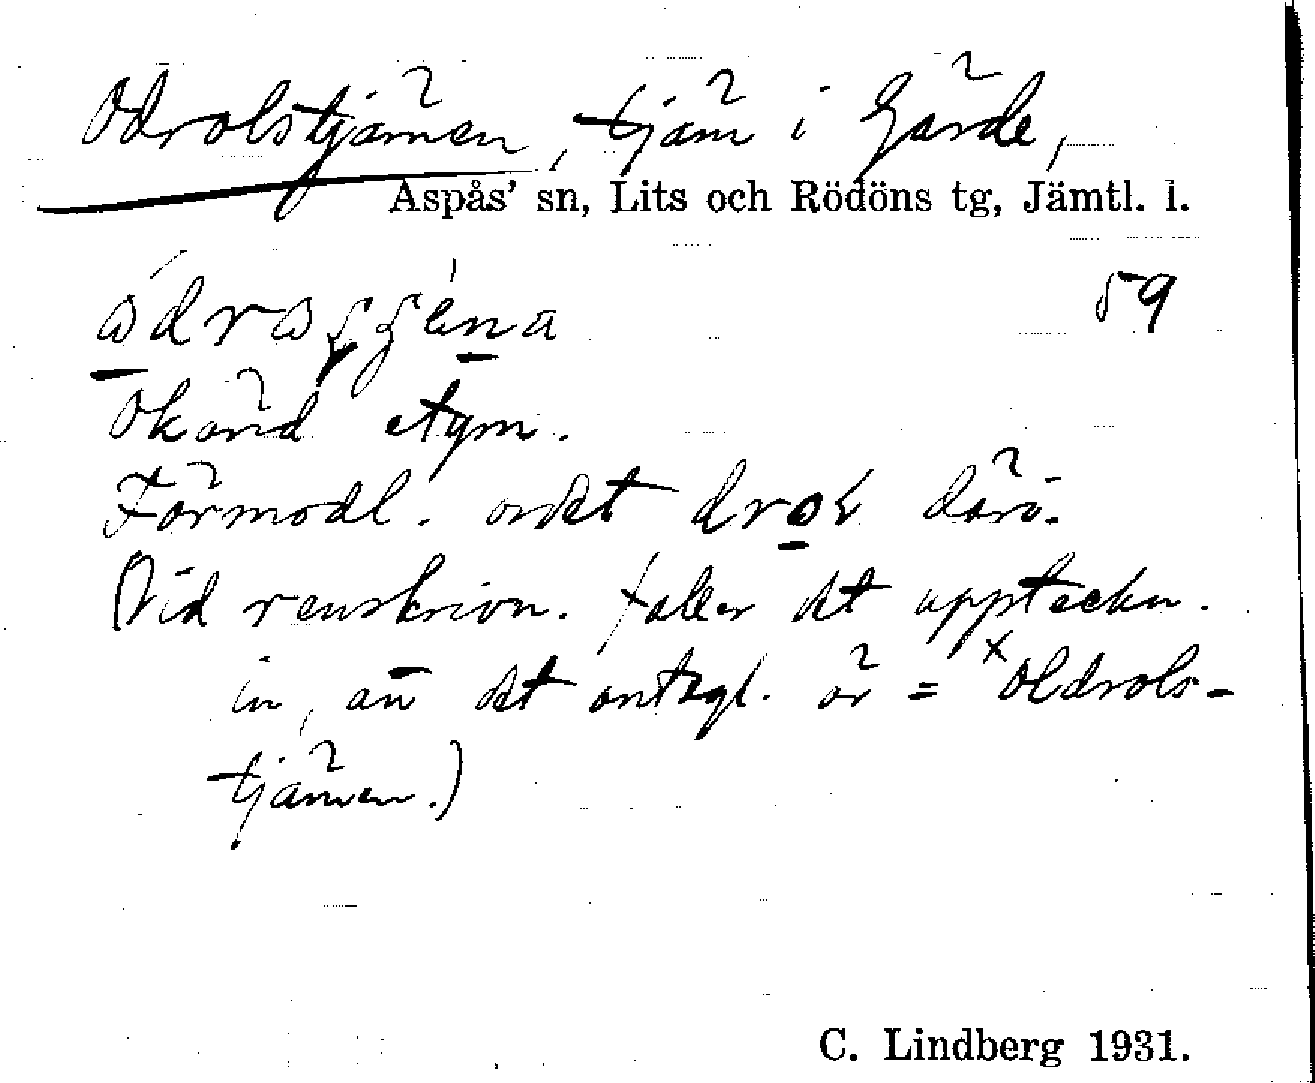 Odrolstjärnen, tjärn i Gärde,
Aspås' sn, Lits och Rödöns tg, Jämtl. l.
59
Okänd etym.
Förmodl. ordet drol däri.
(Vid renskrivn. faller det uppteckn.
in, att det antagl. är = ˣOldrols-
tjärnen.)
C. Lindberg 1931.